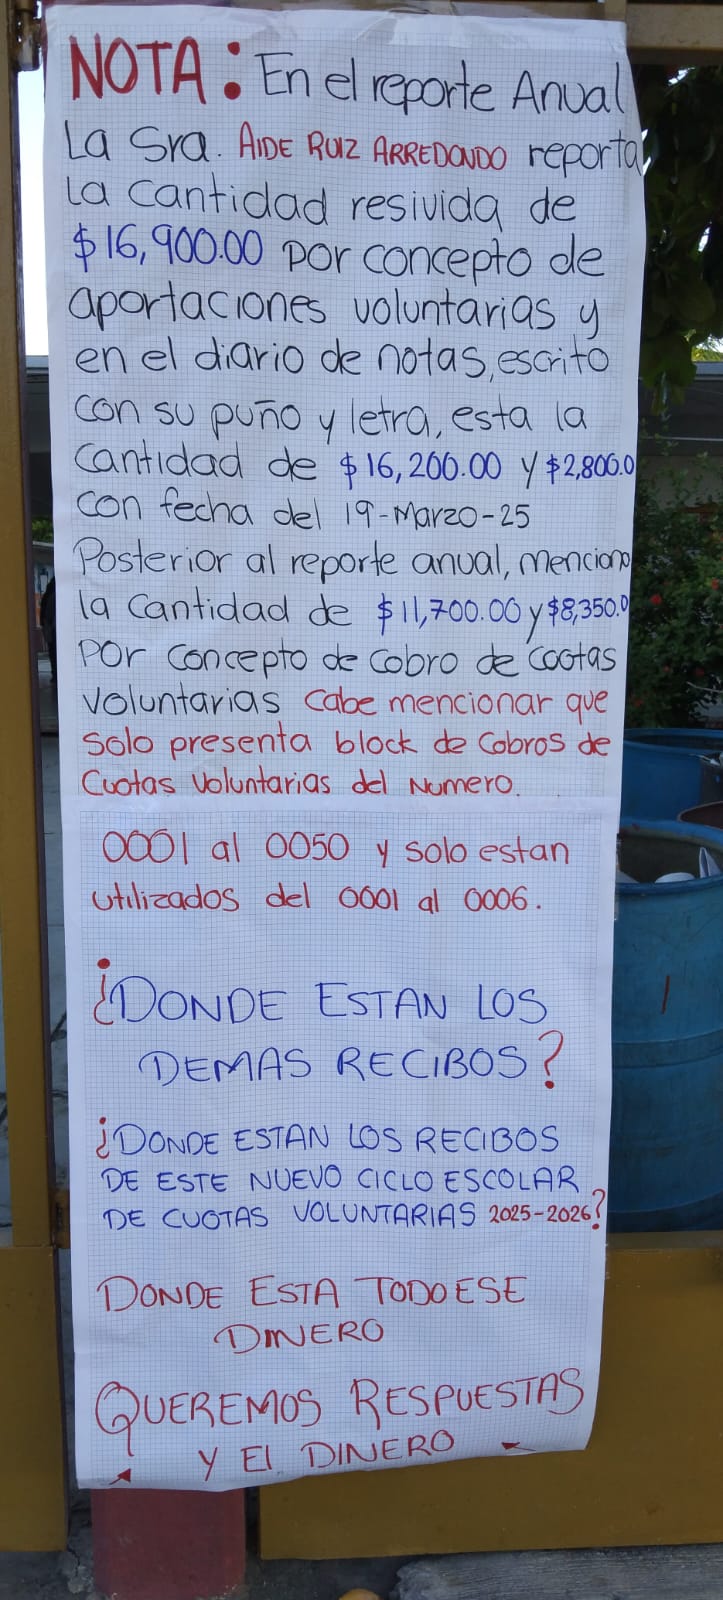 NOTA: En el reporte Anual
La Sra. AIDE RUIZ ARREDONDO reporta
la cantidad resivida de
$16,900.00 por concepto de
aportaciones voluntarias y
en el diario de notas, escrito
con su puño y letra, esta la
cantidad de $16,200.00 y $2,800.0
con fecha del 19-Marzo-25
Posterior al reporte anual, menciono
la cantidad de $11,700.00 y $8,350.0
por concepto de cobro de cootas
voluntarias cabe mencionar que
solo presenta block de cobros de
cuotas voluntarias del Numero.
0001 al 0050 y solo estan
utilizados del 0001 al 0006.
¿DONDE ESTAN LOS
DEMAS RECIBOS?
¿DONDE ESTAN LOS RECIBOS
DE ESTE NUEVO CICLO ESCOLAR
DE CUOTAS VOLUNTARIAS 2025-2026?
DONDE ESTA TODO ESE
DINERO
QUEREMOS RESPUESTAS
Y El DINERO